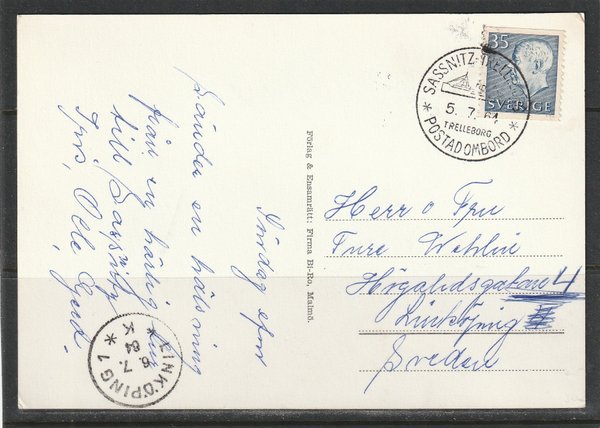 Söndag efm
Sänder en hälsning
från en härlig tur
till Sassnitz
Iris, Olle Gerd.
Förlag & Ensamrätt: Firma Bi-Ro, Malmö.
35
SVERIGE
SASSNITZ-TRELLEBORG
5. 7. 64
TRELLEBORG
* POSTAD OMBORD *
Herr o Fru
Ture Wehlin
Högalidsgatan 4
Linköping
Sweden
* LINKÖPING 1 *
K
6. 7.
64